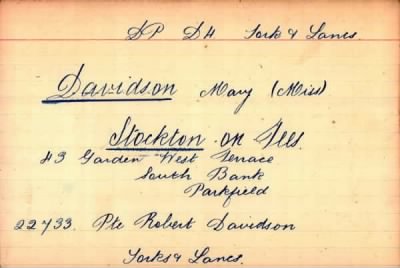 DP D4 York & Lancs.
Davidson Mary (Miss)
Stockton on Tees.
43 Garden West Terrace
South Bank
Parkfield
22733. Pte Robert Davidson
Yorks & Lancs.